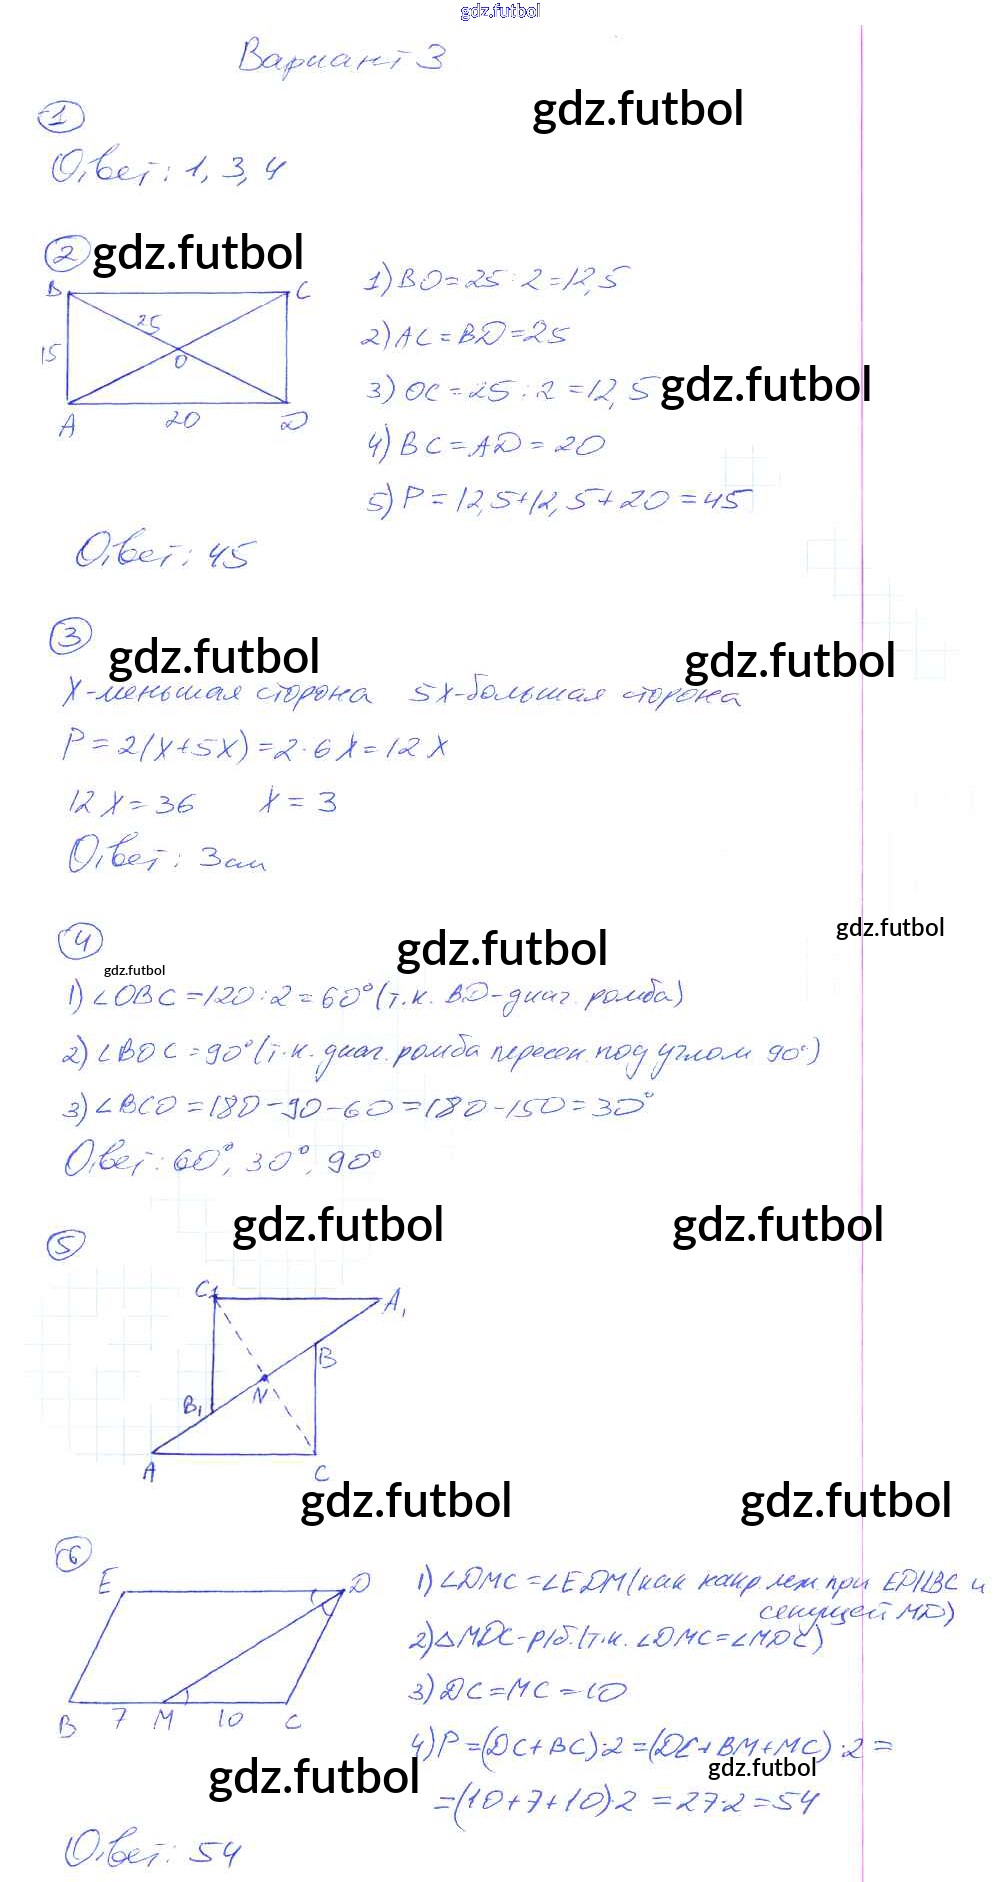 gdz.futbol
Вариант 3
gdz.futbol
1
Ответ: 1, 3, 4
2 gdz.futbol
B C
25
15
O
A 20 D
1) BO = 25 : 2 = 12,5
2) AC = BD = 25
3) OC = 25 : 2 = 12,5 gdz.futbol
4) BC = AD = 20
5) P = 12,5 + 12,5 + 20 = 45
Ответ: 45
3
gdz.futbol gdz.futbol
x - меньшая сторона 5x - большая сторона
P = 2(x + 5x) = 2 · 6x = 12x
12x = 36 x = 3
Ответ: 3 см
gdz.futbol
4 gdz.futbol
gdz.futbol
1) ∠OBC = 120 : 2 = 60° (т.к. BD - диаг. ромба)
2) ∠BOC = 90° (т.к. диаг. ромба пересек. под углом 90°)
3) ∠BCO = 180 - 90 - 60 = 180 - 150 = 30°
Ответ: 60°, 30°, 90°
gdz.futbol gdz.futbol
5
C1 A1
B
N
B1
A C
gdz.futbol gdz.futbol
6
E D
B 7 M 10 C
1) ∠DMC = ∠EDM (как накр леж. при ED||BC и
секущей MD)
2) △MDC - р/б. (т.к. ∠DMC = ∠MDC)
3) DC = MC = 10
4) P = (DC + BC) · 2 = (DC + BM + MC) · 2 =
gdz.futbol gdz.futbol
= (10 + 7 + 10) · 2 = 27 · 2 = 54
Ответ: 54